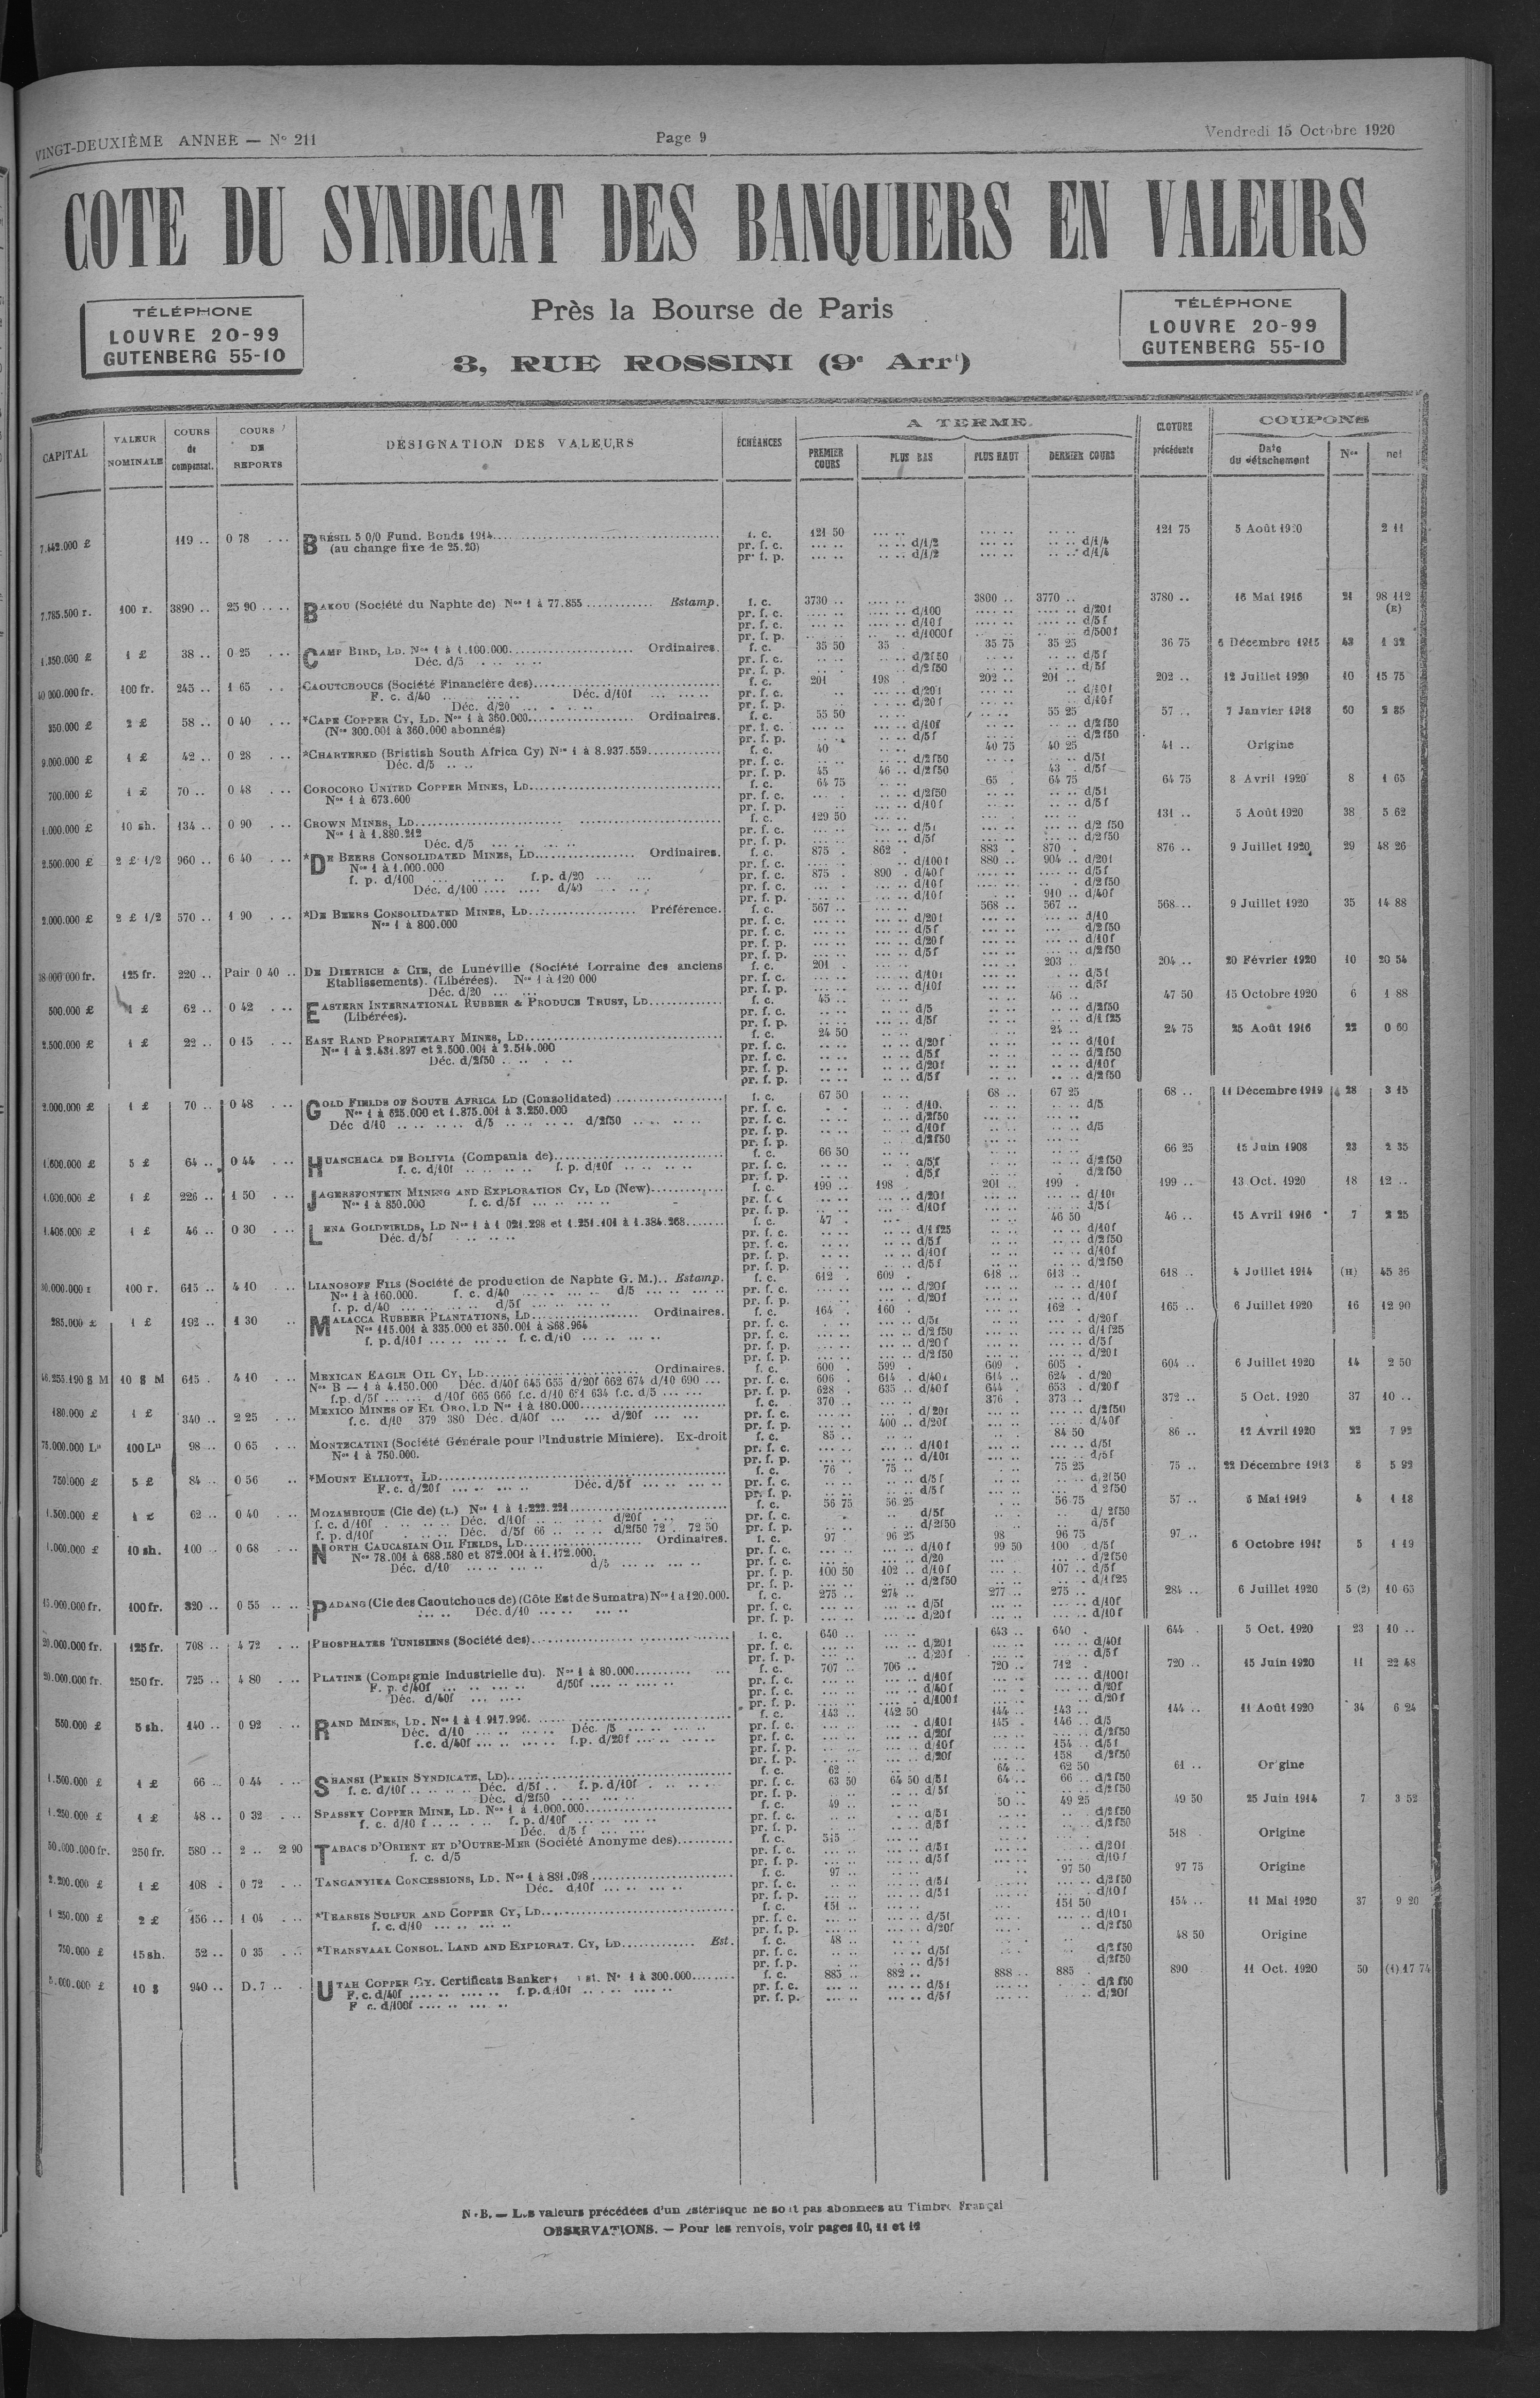 VINGT-DEUXIÈME ANNEE — N° 211 Page 9 Vendredi 15 Octobre 1920
COTE DU SYNDICAT DES BANQUIERS EN VALEURS
TÉLÉPHONE
LOUVRE 20-99
GUTENBERG 55-10
Près la Bourse de Paris
3, RUE ROSSINI (9e Arrt)
TÉLÉPHONE
LOUVRE 20-99
GUTENBERG 55-10
CAPITAL VALEUR NOMINALE COURS de compensat. COURS DE REPORTS DÉSIGNATION DES VALEURS ÉCHÉANCES A TERME CLOTURE précédente COUPONS
PREMIER COURS PLUS BAS PLUS HAUT DERNIER COURS Date du détachement Nos net
7.442.000 £ 119 .. 0 78 BRÉSIL 5 0/0 Fund. Bonds 1914 f. c. 121 50 121 75 5 Août 1920 2 11
(au change fixe de 25.20) pr. f. c. d/1/2 d/1/4
pr. f. p. d/1/2 d/1/4
7.785.500 r. 100 r. 3890 .. 25 90 BAKOU (Société du Naphte de) Nos 1 à 77.855 Estamp. f. c. 3730 .. 3800 .. 3770 .. 3780 .. 16 Mai 1916 21 98 112
pr. f. c. d/100 d/20f (R)
pr. f. c. d/10f d/5f
pr. f. p. d/1000f d/500f
1.350.000 £ 1 £ 38 .. 0 25 CAMP BIRD, LD. Nos 1 à 1.100.000 Ordinaires. f. c. 35 50 35 35 75 35 25 36 75 6 Décembre 1915 43 1 32
Déc. d/5 pr. f. c. d/2f50 d/5f
pr. f. p. d/2f50 d/5f
40 000.000 fr. 100 fr. 245 .. 1 65 CAOUTCHOUCS (Société Financière des) f. c. 201 198 202 .. 201 .. 202 .. 12 Juillet 1920 10 15 75
F. c. d/40 Déc. d/10f pr. f. c. d/20f d/10f
Déc. d/20 pr. f. p. d/20f d/10f
350.000 £ 2 £ 58 .. 0 40 *CAPE COPPER CY, LD. Nos 1 à 360.000 Ordinaires. f. c. 55 50 55 25 57 .. 7 Janvier 1913 60 2 85
(Nos 300.001 à 360.000 abonnés) pr. f. c. d/10f d/2f50
pr. f. p. d/5f d/2f50
9.000.000 £ 1 £ 42 .. 0 28 *CHARTERED (Bristish South Africa Cy) Nos 1 à 8.937.559 f. c. 40 40 75 40 25 41 .. Origine
Déc. d/5 pr. f. c. d/2f50 d/5f
pr. f. p. 45 46 .. d/2f50 43 . d/5f
700.000 £ 1 £ 70 .. 0 48 COROCORO UNITED COPPER MINES, LD f. c. 64 75 65 64 75 64 75 8 Avril 1920 8 1 65
Nos 1 à 673.600 pr. f. c. d/2f50 d/5f
pr. f. p. d/10f d/5f
1.000.000 £ 10 sh. 134 .. 0 90 CROWN MINES, LD f. c. 129 50 131 .. 5 Août 1920 38 5 62
Nos 1 à 1.880.212 pr. f. c. d/5f d/2 f50
Déc. d/5 pr. f. p. d/5f d/2f50
2.500.000 £ 2 £ 1/2 960 .. 6 40 *DE BEERS CONSOLIDATED MINES, LD Ordinaires. f. c. 875 . 862 . 883 . 870 . 876 .. 9 Juillet 1920 29 48 26
Nos 1 à 1.000.000 pr. f. c. d/100f 880 .. 904 .. d/20f
f. p. d/100 f.p. d/20 pr. f. c. 875 . 890 . d/40f d/5f
Déc. d/100 d/40 pr. f. c. d/10f d/2f50
pr. f. p. d/10f 910 .. d/40f
2.000.000 £ 2 £ 1/2 570 .. 1 90 *DE BEERS CONSOLIDATED MINES, LD Préférence. f. c. 567 .. 568 .. 567 .. 568 .. 9 Juillet 1920 35 14 88
Nos 1 à 800.000 pr. f. c. d/20f d/10
pr. f. c. d/5f d/2f50
pr. f. p. d/20f d/10f
pr. f. p. d/5f d/2f50
38 000 000 fr. 125 fr. 220 .. Pair 0 40 DE DIETRICH & CIE, de Lunéville (Société Lorraine des anciens f. c. 201 . 203 204 .. 20 Février 1920 10 20 54
Etablissements). (Libérées). Nos 1 à 120 000 pr. f. c. d/10f d/5f
Déc. d/20 pr. f. p. d/10f d/5f
500.000 £ 1 £ 62 .. 0 42 EASTERN INTERNATIONAL RUBBER & PRODUCE TRUST, LD f. c. 45 .. 46 .. 47 50 15 Octobre 1920 6 1 88
(Libérées). pr. f. c. d/5 d/2f50
pr. f. p. d/5f d/1 f25
2.500.000 £ 1 £ 22 .. 0 15 EAST RAND PROPRIETARY MINES, LD f. c. 24 50 24 .. 24 75 25 Août 1916 22 0 60
Nos 1 à 2.431.897 et 2.500.001 à 2.514.000 pr. f. c. d/20f d/10f
Déc. d/2f50 pr. f. c. d/5f d/2f50
pr. f. p. d/20f d/10f
pr. f. p. d/5f d/2f50
2.000.000 £ 1 £ 70 .. 0 48 GOLD FIELDS OF SOUTH AFRICA LD (Consolidated) f. c. 67 50 68 .. 67 25 68 .. 11 Décembre 1919 28 3 15
Nos 1 à 625.000 et 1.875.001 à 3.250.000 pr. f. c. d/10 d/5
Déc d/10 d/5 d/2f50 pr. f. c. d/2f50
pr. f. p. d/10f d/5
pr. f. p. d/2f50
1.600.000 £ 5 £ 64 .. 0 44 HUANCHACA DE BOLIVIA (Compania de) f. c. 66 50 66 25 15 Juin 1908 23 2 35
f. c. d/10f f. p. d/10f pr. f. c. d/5f d/2f50
pr. f. p. d/5f d/2f50
1.000.000 £ 1 £ 226 .. 1 50 JAGERSFONTEIN MINING AND EXPLORATION CY, LD (New) f. c. 199 .. 198 . 201 .. 199 . 199 .. 13 Oct. 1920 18 12 ..
Nos 1 à 850.000 f. c. d/5f pr. f. c d/20f d/10f
pr. f. p. d/10f d/5f
1.405.000 £ 1 £ 46 .. 0 30 LENA GOLDFIELDS, LD Nos 1 à 1 021.298 et 1.251.101 à 1.384.268 f. c. 47 . 46 50 46 .. 15 Avril 1916 7 2 25
Déc. d/5f pr. f. c. d/1 f25 d/10f
pr. f. c. d/5f d/2f50
pr. f. p. d/10f d/10f
pr. f. p. d/5f d/2f50
100 r. 615 .. 4 10 LIANOSOFF FILS (Société de production de Naphte G. M.) Estamp. f. c. 612 . 609 . 618 .. 613 .. 618 .. 4 Juillet 1914 (H) 45 36
Nos 1 à 160.000. f. c. d/40 d/5 pr. f. c. d/20f d/10f
f. p. d/40 d/5f pr. f. p. d/20f d/10f
285.000 £ 1 £ 192 .. 1 30 MALACCA RUBBER PLANTATIONS, LD Ordinaires. f. c. 164 . 160 . 162 . 165 .. 6 Juillet 1920 16 12 90
Nos 115.001 à 335.000 et 350.001 à 368.964 pr. f. c. d/5f d/20f
f. p. d/10f f. c. d/10 pr. f. c. d/2f50 d/1f25
pr. f. p. d/20f d/5f
pr. f. p. d/2f50 d/20f
46.255.190 $ M 10 $ M 615 . 4 10 MEXICAN EAGLE OIL CY, LD Ordinaires. f. c. 600 . 599 . 609 . 605 . 604 .. 6 Juillet 1920 14 2 50
Nos B — 1 à 4.150.000 Déc. d/40f 645 655 d/20f 662 674 d/10 690 pr. f. c. 606 . 614 . d/40f 614 .. 624 . d/20
f.p. d/5f d/10f 665 666 f.c. d/10 631 634 f.c. d/5 pr. f. p. 628 . 635 .. d/40f 644 . 653 . d/20f
180.000 £ 1 £ 340 .. 2 25 MEXICO MINES OF EL ORO, LD Nos 1 à 180.000 f. c. 370 .. 376 . 373 .. 372 .. 5 Oct. 1920 37 10 ..
f. c. d/10 379 380 Déc. d/40f d/20f pr. f. c. d/20f d/2f50
pr. f. p. 400 .. d/20f d/40f
75.000.000 Ls 100 Ls 98 .. 0 65 MONTECATINI (Société Générale pour l'Industrie Minière). Ex-droit f. c. 85 .. 84 50 86 .. 12 Avril 1920 22 7 92
Nos 1 à 750.000. pr. f. c. d/10f d/5f
pr. f. p. d/10f d/5f
750.000 £ 5 £ 84 .. 0 56 *MOUNT ELLIOTT, LD f. c. 76 . 75 .. 75 25 75 .. 22 Décembre 1913 8 5 92
F. c. d/20f Déc. d/5f pr. f. c. d/5f d/2f50
pr. f. p. d/5f d 2f50
1.500.000 £ 1 £ 62 .. 0 40 MOZAMBIQUE (Cie de) (L) Nos 1 à 1.222.221 f. c. 56 75 56 25 56 75 57 .. 5 Mai 1919 4 1 18
f. c. d/10f Déc. d/10f d/20f pr. f. c. d/5f d/2f50
f. p. d/10f Déc. d/5f 66 d/2f50 72 . 72 50 pr. f. p. d/2f50 d/5f
1.000.000 £ 10 sh. 100 .. 0 68 NORTH CAUCASIAN OIL FIELDS, LD Ordinaires. f. c. 97 96 25 98 96 75 97 .. 6 Octobre 5 1 19
Nos 78.001 à 688.580 et 872.001 à 1.172.000. pr. f. c. d/10f 99 50 100 . d/5f
Déc. d/10 d/5 pr. f. c. d/20 d/2f50
pr. f. p. 100 50 102 .. d/10f 107 .. d/5f
pr. f. p. d/2f50 d/1f25
15.000.000 fr. 100 fr. 320 .. 0 55 PADANG (Cie des Caoutchoucs de) (Côte Est de Sumatra) Nos 1 à 120.000. f. c. 275 .. 274 .. 277 .. 275 .. 284 .. 6 Juillet 1920 5 (2) 10 65
Déc. d/10 pr. f. c. d/5f d/10f
pr. f. p. d/20f d/10f
20.000.000 fr. 125 fr. 708 .. 4 72 PHOSPHATES TUNISIENS (Société des) f. c. 640 .. 643 .. 640 . 644 . 5 Oct. 1920 23 10 ..
pr. f. c. d/20f d/40f
pr. f. p. d/20f d/5f
20.000.000 fr. 250 fr. 725 .. 4 80 PLATINE (Compagnie Industrielle du). Nos 1 à 80.000 f. c. 707 .. 706 .. 720 .. 712 . 720 .. 15 Juin 1920 11 22 48
F. p. d/40f d/50f pr. f. c. d/10f d/100f
Déc. d/40f pr. f. c. d/40f d/20f
pr. f. p. d/100f d/20f
550.000 £ 5 sh. 140 .. 0 92 RAND MINES, LD. Nos 1 à 1.917.996 f. c. 143 .. 142 50 144 .. 143 .. 144 .. 11 Août 1920 34 6 24
Déc. d/10 Déc. /5 pr. f. c. d/10f 145 . 146 .. d/5
f.c. d/40f f.p. d/20f pr. f. c. d/20f d/2f50
pr. f. p. d/10f 154 .. d/5f
pr. f. p. d/20f 158 d/2f50
1.500.000 £ 1 £ 66 .. 0 44 SHANSI (PEKIN SYNDICATE, LD) f. c. 62 .. 64 .. 62 50 61 .. Origine
f. c. d/10f Déc. d/5f f. p. d/10f pr. f. c. 63 50 64 50 d/5f 64 .. 66 .. d/2f50
Déc. d/2f50 pr. f. p. d/5f d/2f50
1.250.000 £ 1 £ 48 .. 0 32 SPASSKY COPPER MINE, LD. Nos 1 à 1.000.000 f. c. 49 .. 50 .. 49 25 49 50 25 Juin 1914 7 3 52
f. c. d/10 f f. p. d/10f pr. f. c. d/5f d/2f50
Déc. d/5 f pr. f. p. d/5f d/2f50
50.000.000 fr. 250 fr. 580 .. 2 .. 2 90 TABACS D'ORIENT ET D'OUTRE-MER (Société Anonyme des) f. c. 515 518 . Origine
f. c. d/5 pr. f. c. d/5f d/20f
pr. f. p. d/5f d/10f
2.200.000 £ 1 £ 108 . 0 72 TANGANYIKA CONCESSIONS, LD. Nos 1 à 881.098 f. c. 97 .. 97 50 97 75 Origine
Déc. d/10f pr. f. c. d/5f d/2f50
pr. f. p. d/5f d/10f
1 250.000 £ 2 £ 156 .. 1 04 *THARSIS SULFUR AND COPPER CY, LD f. c. 151 .. 151 50 154 .. 11 Mai 1920 37 9 20
f. c. d/10 pr. f. c. d/5f d/10f
pr. f. p. d/20f d/2f50
750.000 £ 15 sh. 52 .. 0 35 *TRANSVAAL CONSOL. LAND AND EXPLORAT. CY, LD Est. f. c. 48 .. 48 50 Origine
pr. f. c. d/5f d/2f50
pr. f. p. d/5f d/2f50
10 $ 940 .. D. 7 .. UTAH COPPER CY. Certificats Bankers Nos 1 à 300.000 f. c. 885 .. 882 .. 888 .. 885 . 890 11 Oct. 1920 50 (1) 17 74
F. c. d/40f f. p. d 10f pr. f. c. d/5f d/2f50
F c. d/100f pr. f. p. d/5f d/20f
N.B. — Les valeurs précédées d'un astérisque ne sont pas abonnées au Timbre Françai
OBSERVATIONS. — Pour les renvois, voir pages 10, 11 et 12